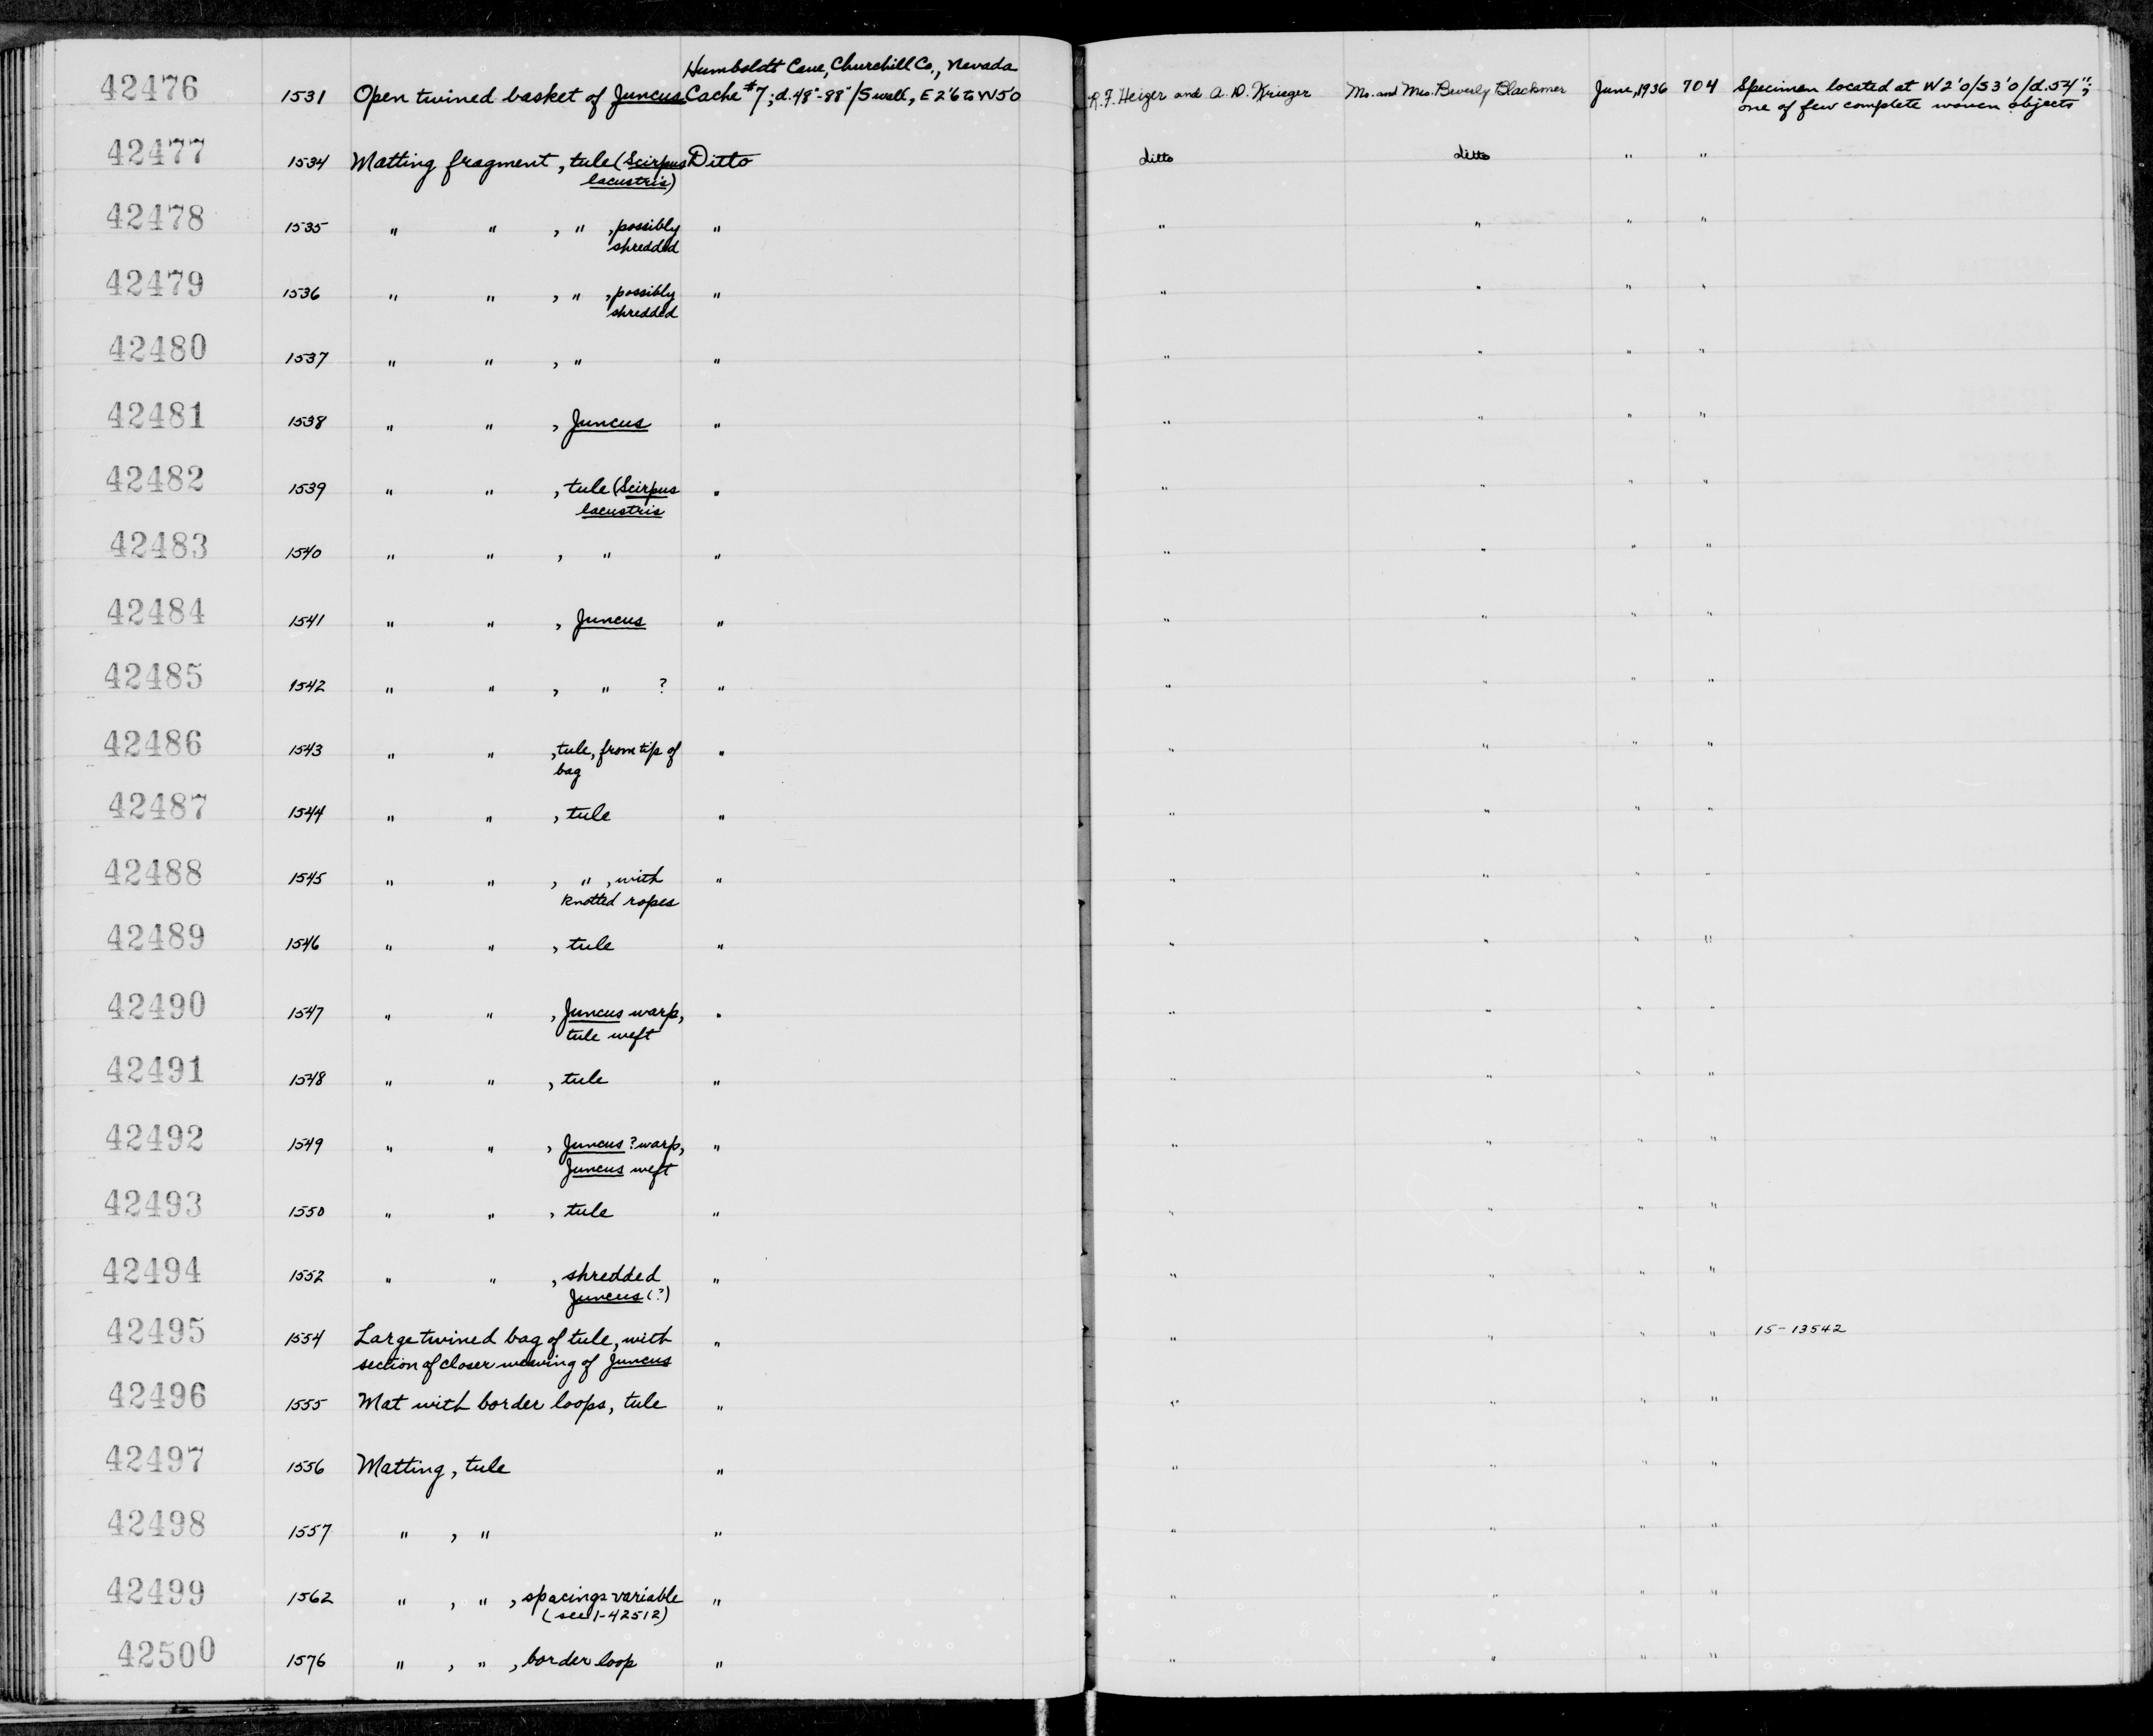 Humboldt Cave, Churchill Co., Nevada
42476 1531 Open twined basket of Juncus Cache #7; d. 48"-88"/S wall, E 2'6 to W5'0 R.F. Heizer and A. D. Krieger Mr. and Mrs. Beverly Blackmer June, 1936 704 Specimen located at W2'0/S3'0/d.54";
one of few complete woven objects
42477 1534 Matting fragment, tule (Scirpus Ditto ditto ditto " "
lacustris)
42478 1535 " " , " , possibly " " " " "
shredded
42479 1536 " " , " , possibly " " " " "
shredded
42480 1537 " " , " " " " " "
42481 1538 " " , Juncus " " " " "
42482 1539 " " , tule (Scirpus " " " " "
lacustris
42483 1540 " " , " " " " " "
42484 1541 " " , Juncus " " " " "
42485 1542 " " , " ? " " " " "
42486 1543 " " , tule, from tip of " " " " "
bag
42487 1544 " " , tule " " " " "
42488 1545 " " , " , with " " " " "
knotted ropes
42489 1546 " " , tule " " " " "
42490 1547 " " , Juncus warp, " " " " "
tule weft
42491 1548 " " , tule " " " " "
42492 1549 " " , Juncus ? warp, " " " " "
Juncus weft
42493 1550 " " , tule " " " " "
42494 1552 " " , shredded " " " " "
Juncus (?)
42495 1554 Large twined bag of tule, with " " " " " 15-13542
section of closer weaving of Juncus
42496 1555 Mat with border loops, tule " " " " "
42497 1556 Matting, tule " " " " "
42498 1557 " , " " " " " "
42499 1562 " , " , spacings variable " " " " "
(see 1-42512)
42500 1576 " , " , border loop " " " " "